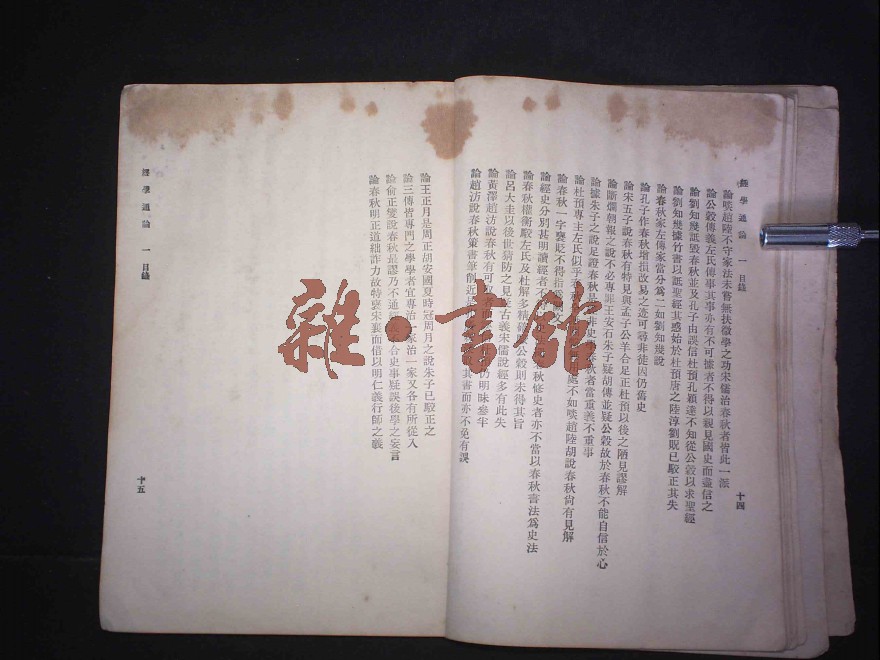 經學通論 一 目錄
十四
論啖趙陸不守家法未嘗無扶微學之功宋儒治春秋者皆此一派
論公穀傳義左氏傳事其事亦有不可據者不得以親見國史而盡信之
論劉知幾詆毀春秋並及孔子由誤信杜預孔穎達不知從公穀以求聖經
論劉知幾據竹書以詆聖經其惑始於杜預唐之陸淳劉貺已駁正其失
論春秋家左傳家當分為二如劉知幾說
論孔子作春秋增損改易之迹可尋非徒因仍舊史
論宋五子說春秋有特見與孟子公羊合足正杜預以後之陋見謬解
論斷爛朝報之說不必專罪王安石朱子疑胡傳並疑公穀故於春秋不能自信於心
論據朱子之說足證春秋是 非史 春秋者當重義不重事
論杜預專主左氏似乎 處不如啖趙陸胡說春秋尚有見解
論春秋一字褒貶不得指
論經史分別甚明讀經者不 秋修史者亦不當以春秋書法為史法
論春秋權衡駁左氏及杜解多精 公穀則未得其旨
論呂大圭以後世猜防之見 古義宋儒說經多有此失
論黃澤趙汸說春秋有可 仍明昧參半
論趙汸說春秋策書筆削近 其書而亦不免有誤
論王正月是周正胡安國夏時冠周月之說朱子已駁正之
論三傳皆專門之學學者宜專治一家治一家又各有所從入
論俞正燮說春秋最謬乃不通 合史事疑誤後學之妄言
論春秋明正道絀詐力故特褒宋襄而借以明仁義行師之義
經學通論 一 目錄
十五
雜·書館